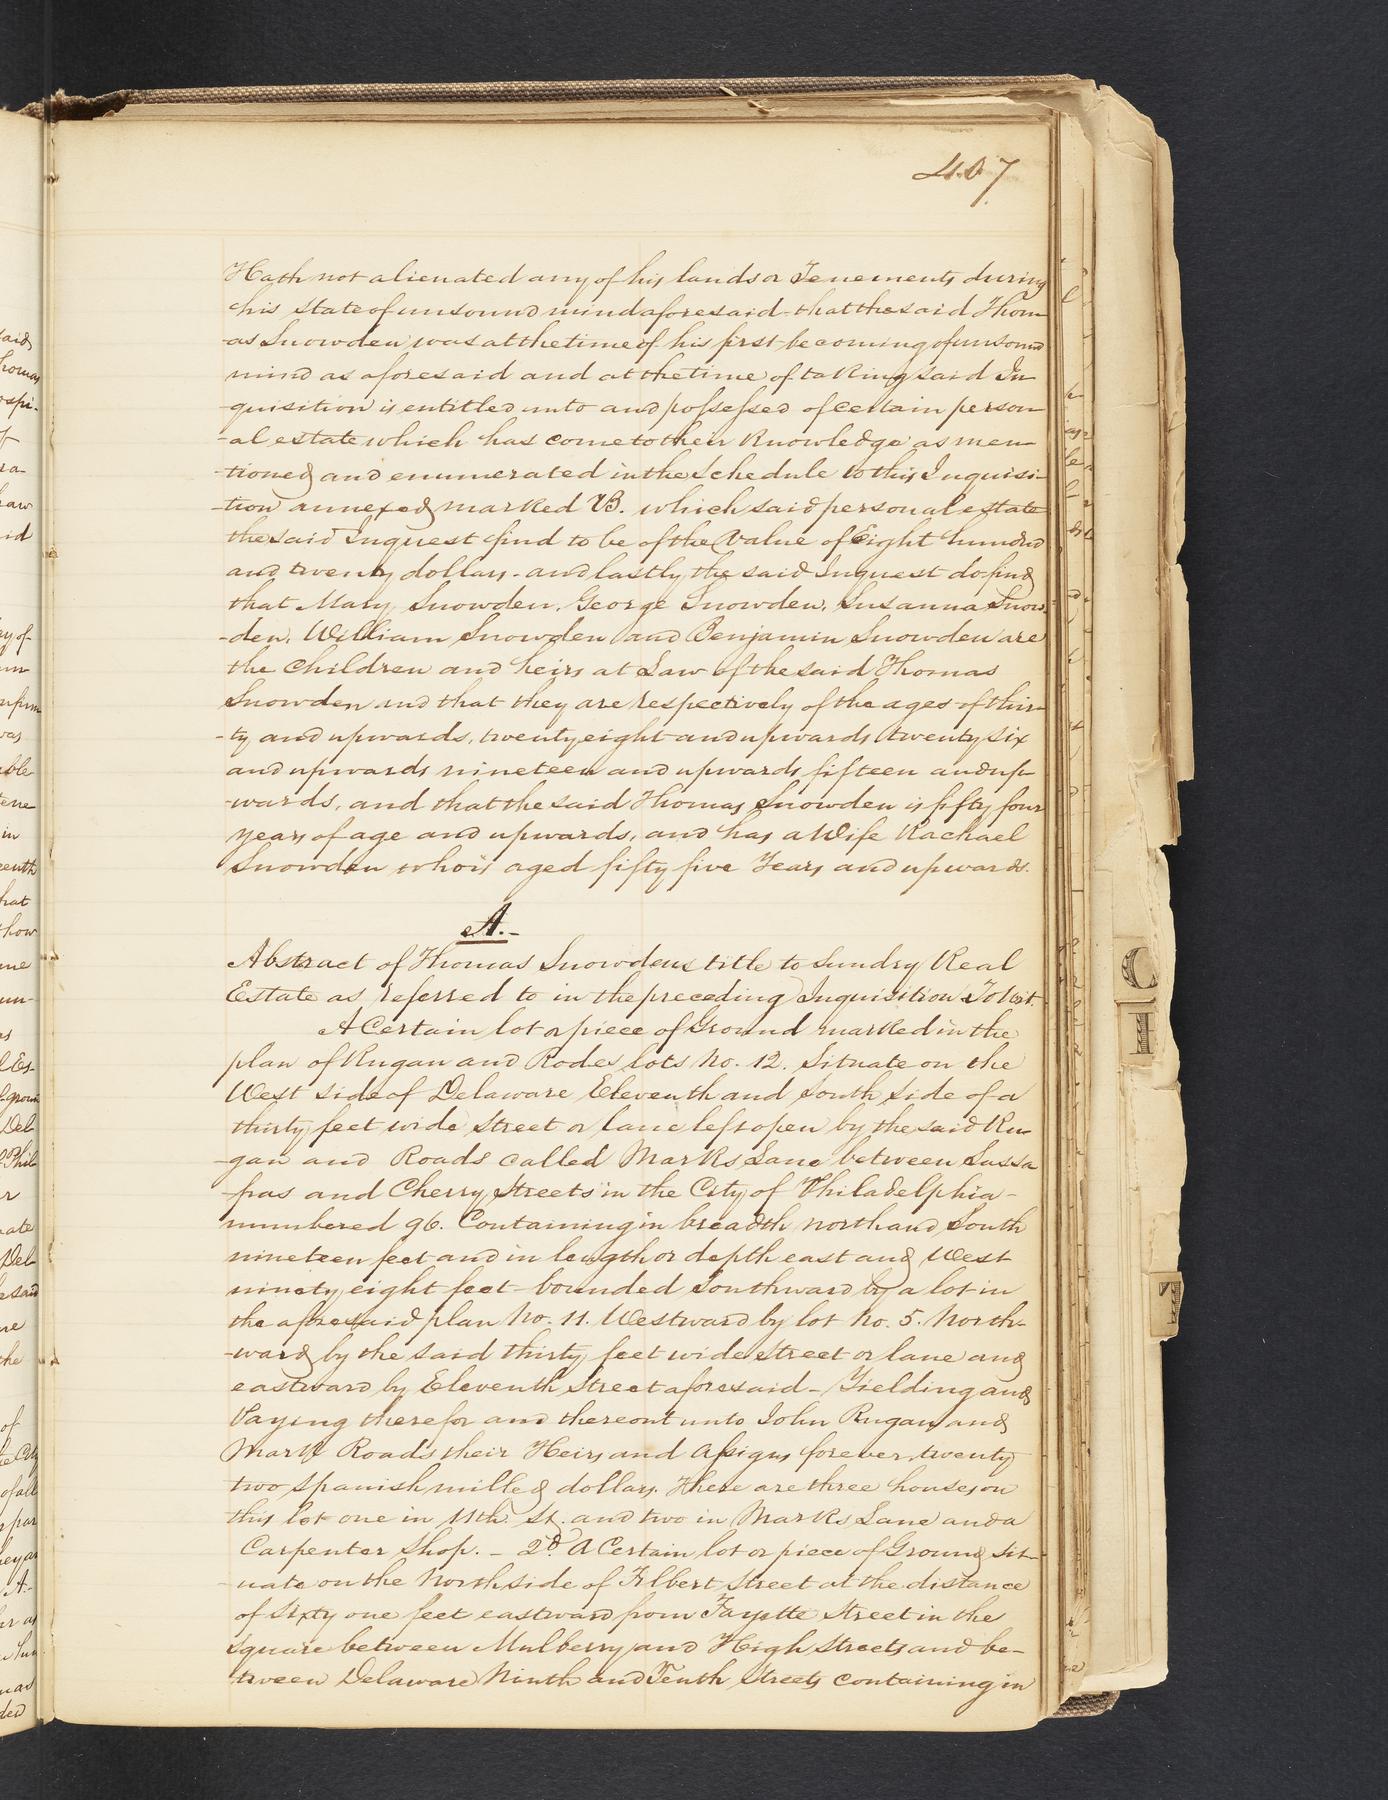 407
Hath not alienated any of his lands or Tenements during
his state of unsound mind aforesaid - that the said Thom-
-as Snowden was at the time of his first becoming of unsound
mind as aforesaid and at the time of taking said In-
quisition is entitled unto and possessed of certain person-
-al estate which has come to their Knowledge as men-
-tioned and enumerated in the Schedule to this Inquisi-
-tion annexed marked B. which said personal estate
the said Inquest find to be of the Value of Eight hundred
and twenty dollars - and lastly the said Inquest do find
that Mary Snowden, George Snowden, Susanna Snow-
-den, William Snowden and Benjamin Snowden are
the Children and heirs at Law of the said Thomas
Snowden and that they are respectively of the ages of thir-
-ty and upwards, twenty eight and upwards twenty six
and upwards nineteen and upwards fifteen and up-
-wards, and that the said Thomas Snowden is fifty four
years of age and upwards, and has a Wife Rachael
Snowden who is aged fifty five Years and upwards.
A.-
Abstract of Thomas Snowdens title to Sundry Real
Estate as referred to in the preceding Inquisition To Wit.
A Certain lot or piece of Ground marked in the
plan of Rugan and Rodes lots No. 12. Situate on the
West side of Delaware Eleventh and South side of a
thirty feet wide Street or lane left open by the said Ru-
-gan and Roads called Marks Lane between Sassa
-fras and Cherry Streets in the City of Philadelphia -
numbered 96. Containing in breadth north and South
nineteen feet and in length or depth east and West
ninety eight feet - bounded Southward by a lot in
the aforesaid plan No. 11. Westward by lot No. 5. North-
-ward by the said thirty feet wide Street or lane and
eastward by Eleventh Street aforesaid - Yielding and
Paying therefor and thereout unto John Rugan and
Mark Roads their Heirs and Assigns forever, twenty
two Spanish milled dollars. There are three houses on
this lot one in 11th. St. and two in Marks Lane and a
Carpenter Shop. - 2d. A Certain lot or piece of Ground Sit-
-uate on the North side of Filbert Street at the distance
of Sixty one feet eastward from Fayette Street in the
Square between Mulberry and High Streets and be-
tween Delaware Ninth and Tenth Streets containing in